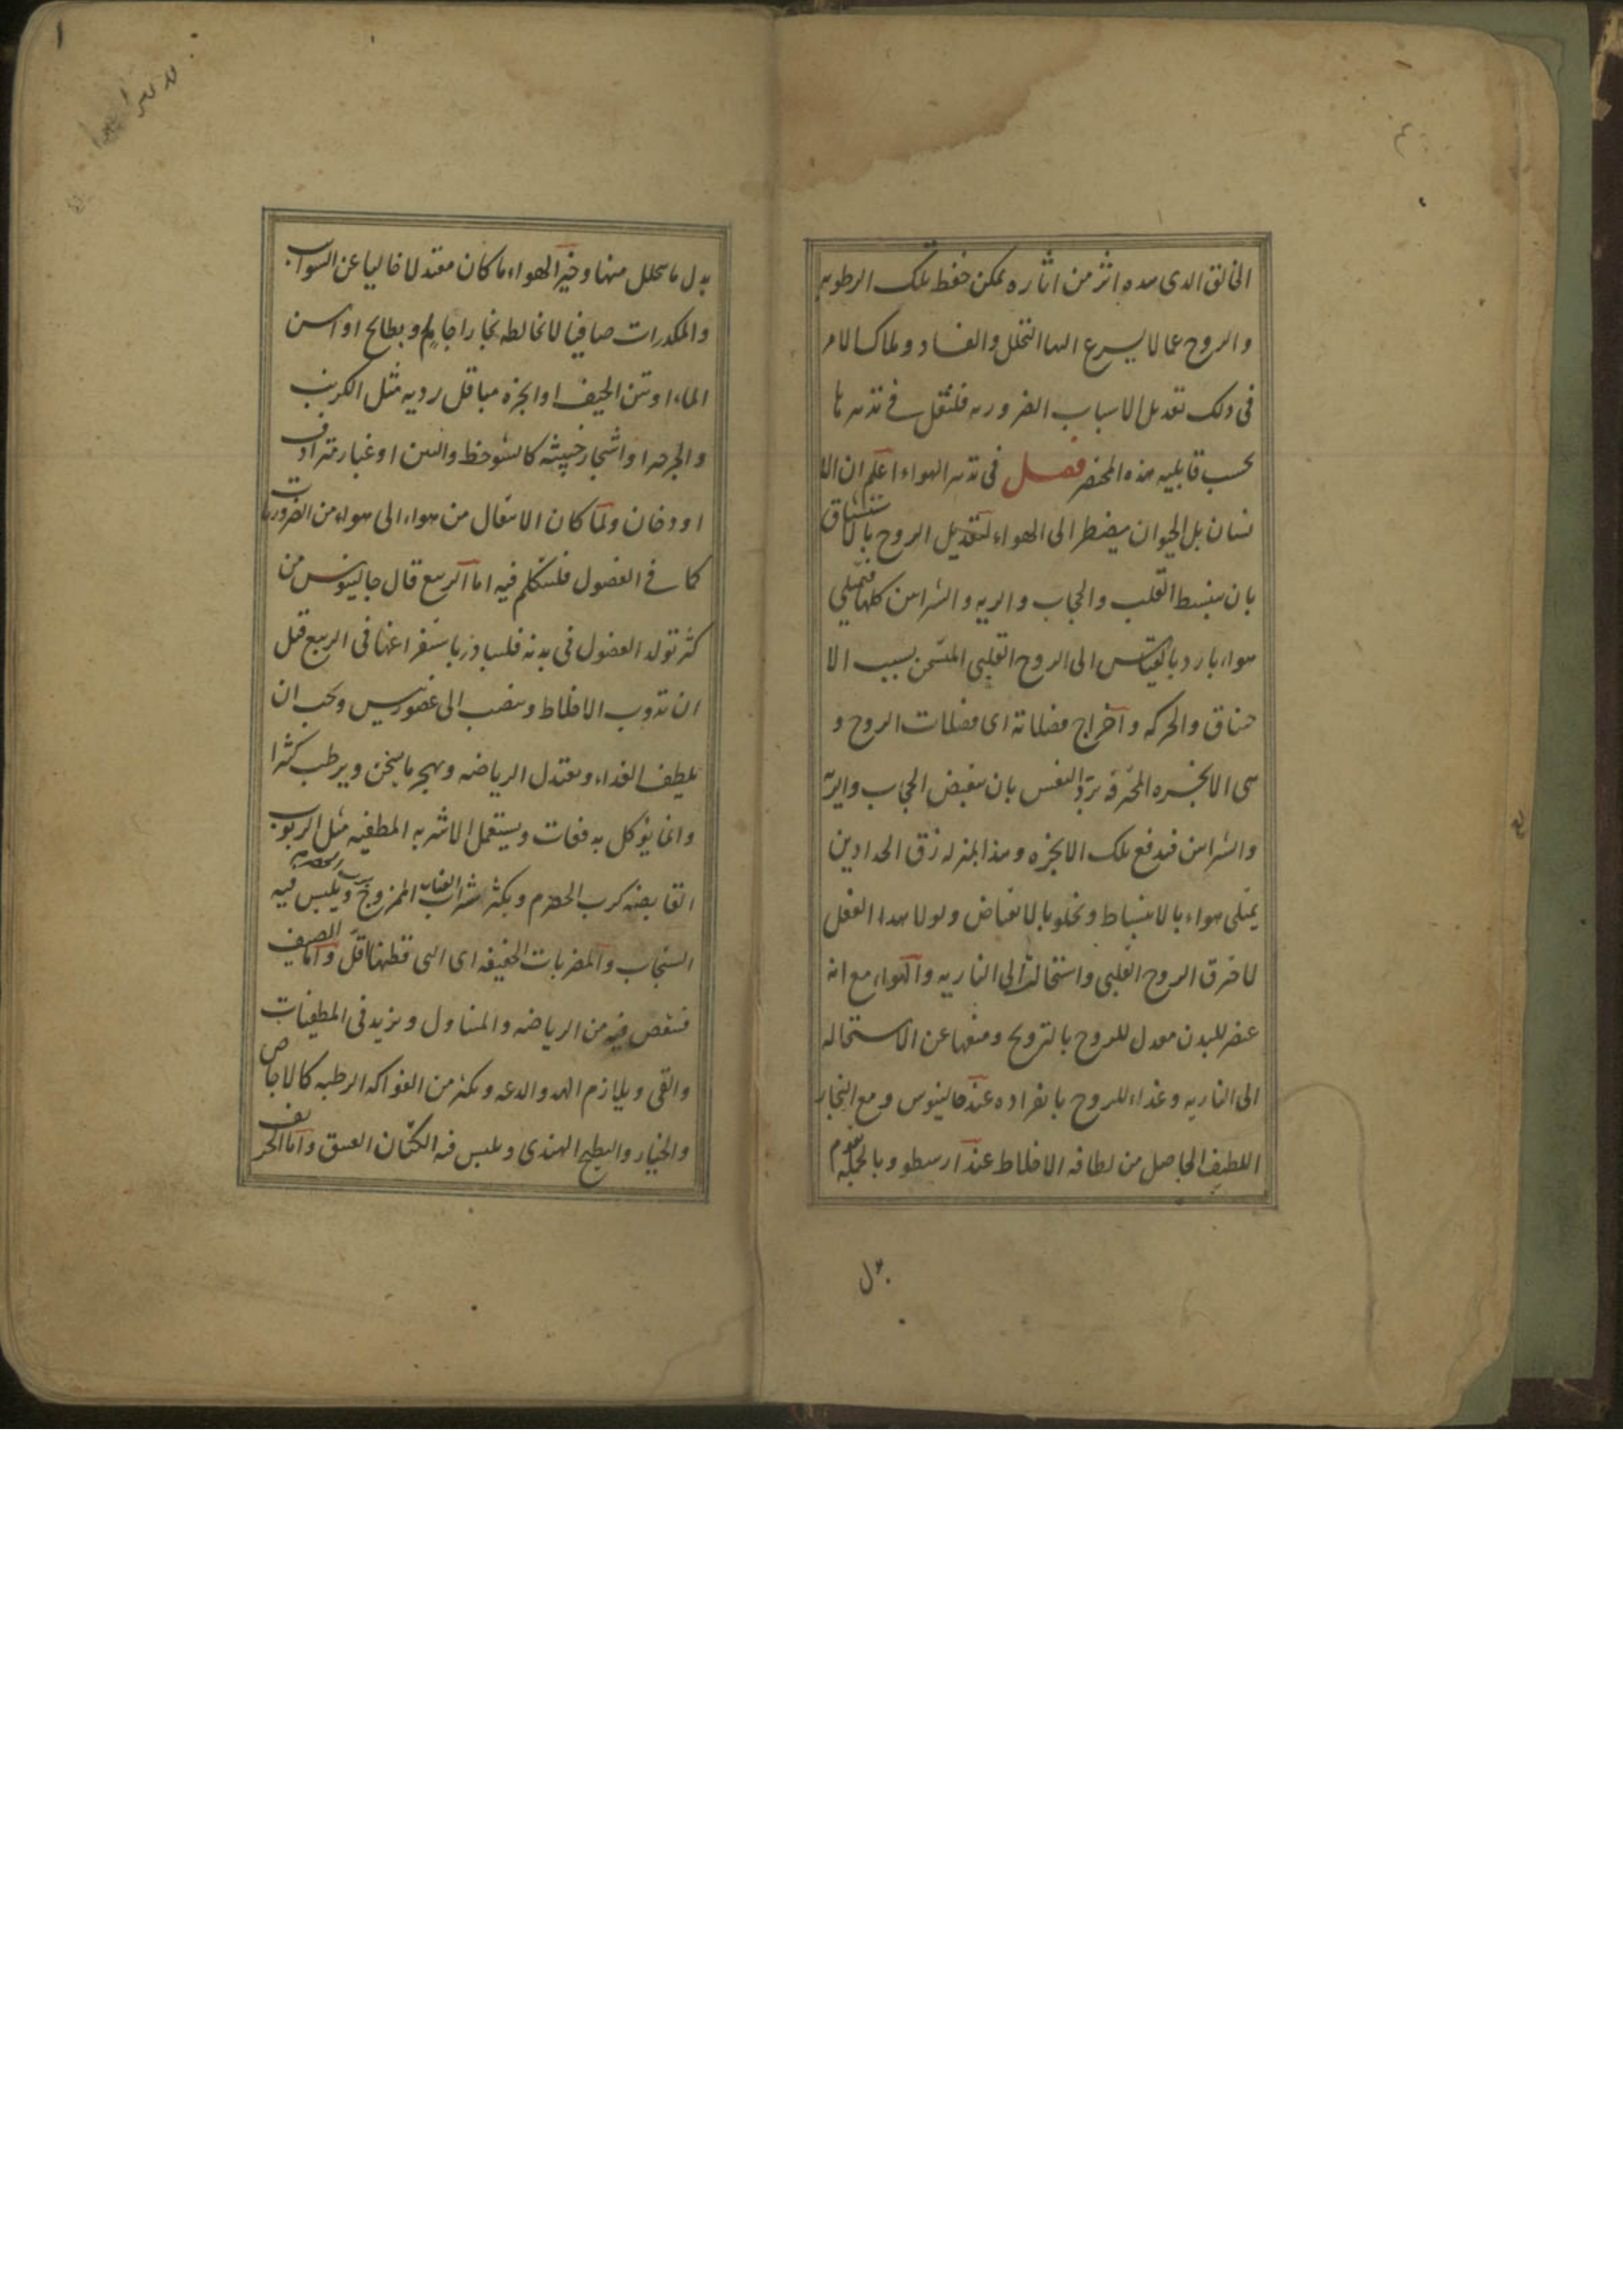 الخالق الذى هذه اثر من اثاره يمكن حفظ تلك الرطوبه
والروح عما لا يسرع اليها التحلل والفساد وملاك الامر
فى ذلك تعديل الاسباب الضروريه فلنقل فى تدبيرها
بحسب قابليه هذه المختصر فصل فى تدبير الهواء اعلم ان الا
نسان بل الحيوان يضطر الى الهواء لتعديل الروح بالاستنشاق
بان ينبسط القلب والحجاب والريه والشرايين كلها فيمتلى
هواء باردا بالقياس الى الروح القلبى المتسخن بسبب الا
حتقان والحركه و اخراج فضلاته اى فضلات الروح و
هى الابخره المحترقه برد النفس بان ينقبض الحجاب والريه
والشرايين فيدفع تلك الابخره وهذا بمنزله زق الحدادين
يمتلى هواء بالانبساط ويخلو بالانقباض ولولا هذا الفعل
لاحترق الروح القلبى واستحالت الى الناريه والهواء مع انه
عنصر للبدن معدل للروح بالترويح ومنعها عن الاستحاله
الى الناريه وغذاء للروح بانفراده عند جالينوس ومع البخار
اللطيف الحاصل من لطافه الاخلاط عند ارسطو وبالجمله يقوم
بدل
بدل ما يتحلل منها وخير الهواء ما كان معتدلا خاليا عن الشوايب
والمكدرات صافيا لا يخالطه بخار اجام و بطايح او اسن
الماء او نتن الجيف او ابخره مباقل رديه مثل الكرنب
والجرجير او اشجار خبيثه كالشوحط والتين او غبار مترادف
او دخان ولما كان الانتقال من هواء الى هواء من الضروريات
كما فى الفصول فلنتكلم فيه اما الربيع قال جالينوس من
كثر تولد الفضول فى بدنه فليبادر باستفراغها فى الربيع قبل
ان تذوب الاخلاط وينصب الى عضو رئيس ويجب ان
يلطف الغذاء ويعتدل الرياضه ويهجر ما يسخن ويرطب كثيرا
وانما يؤكل بدفعات ويستعمل الاشربه المطفيه مثل الربوب
القابضه كرب الحصرم ويكثر شراب العناب الممزوج ويلبس فيه
السنجاب والمضربات الخفيفه اى التى قطنها اقل واما الصيف
فينقص فيه من الرياضه والمتناول ويزيد فى المطفيات
والقى ويلازم الهدو والدعه ويكثر من الفواكه الرطبه كالاجاص
والخيار والبطيخ الهندى ويلبس فيه الكتان العتيق واما الخريف